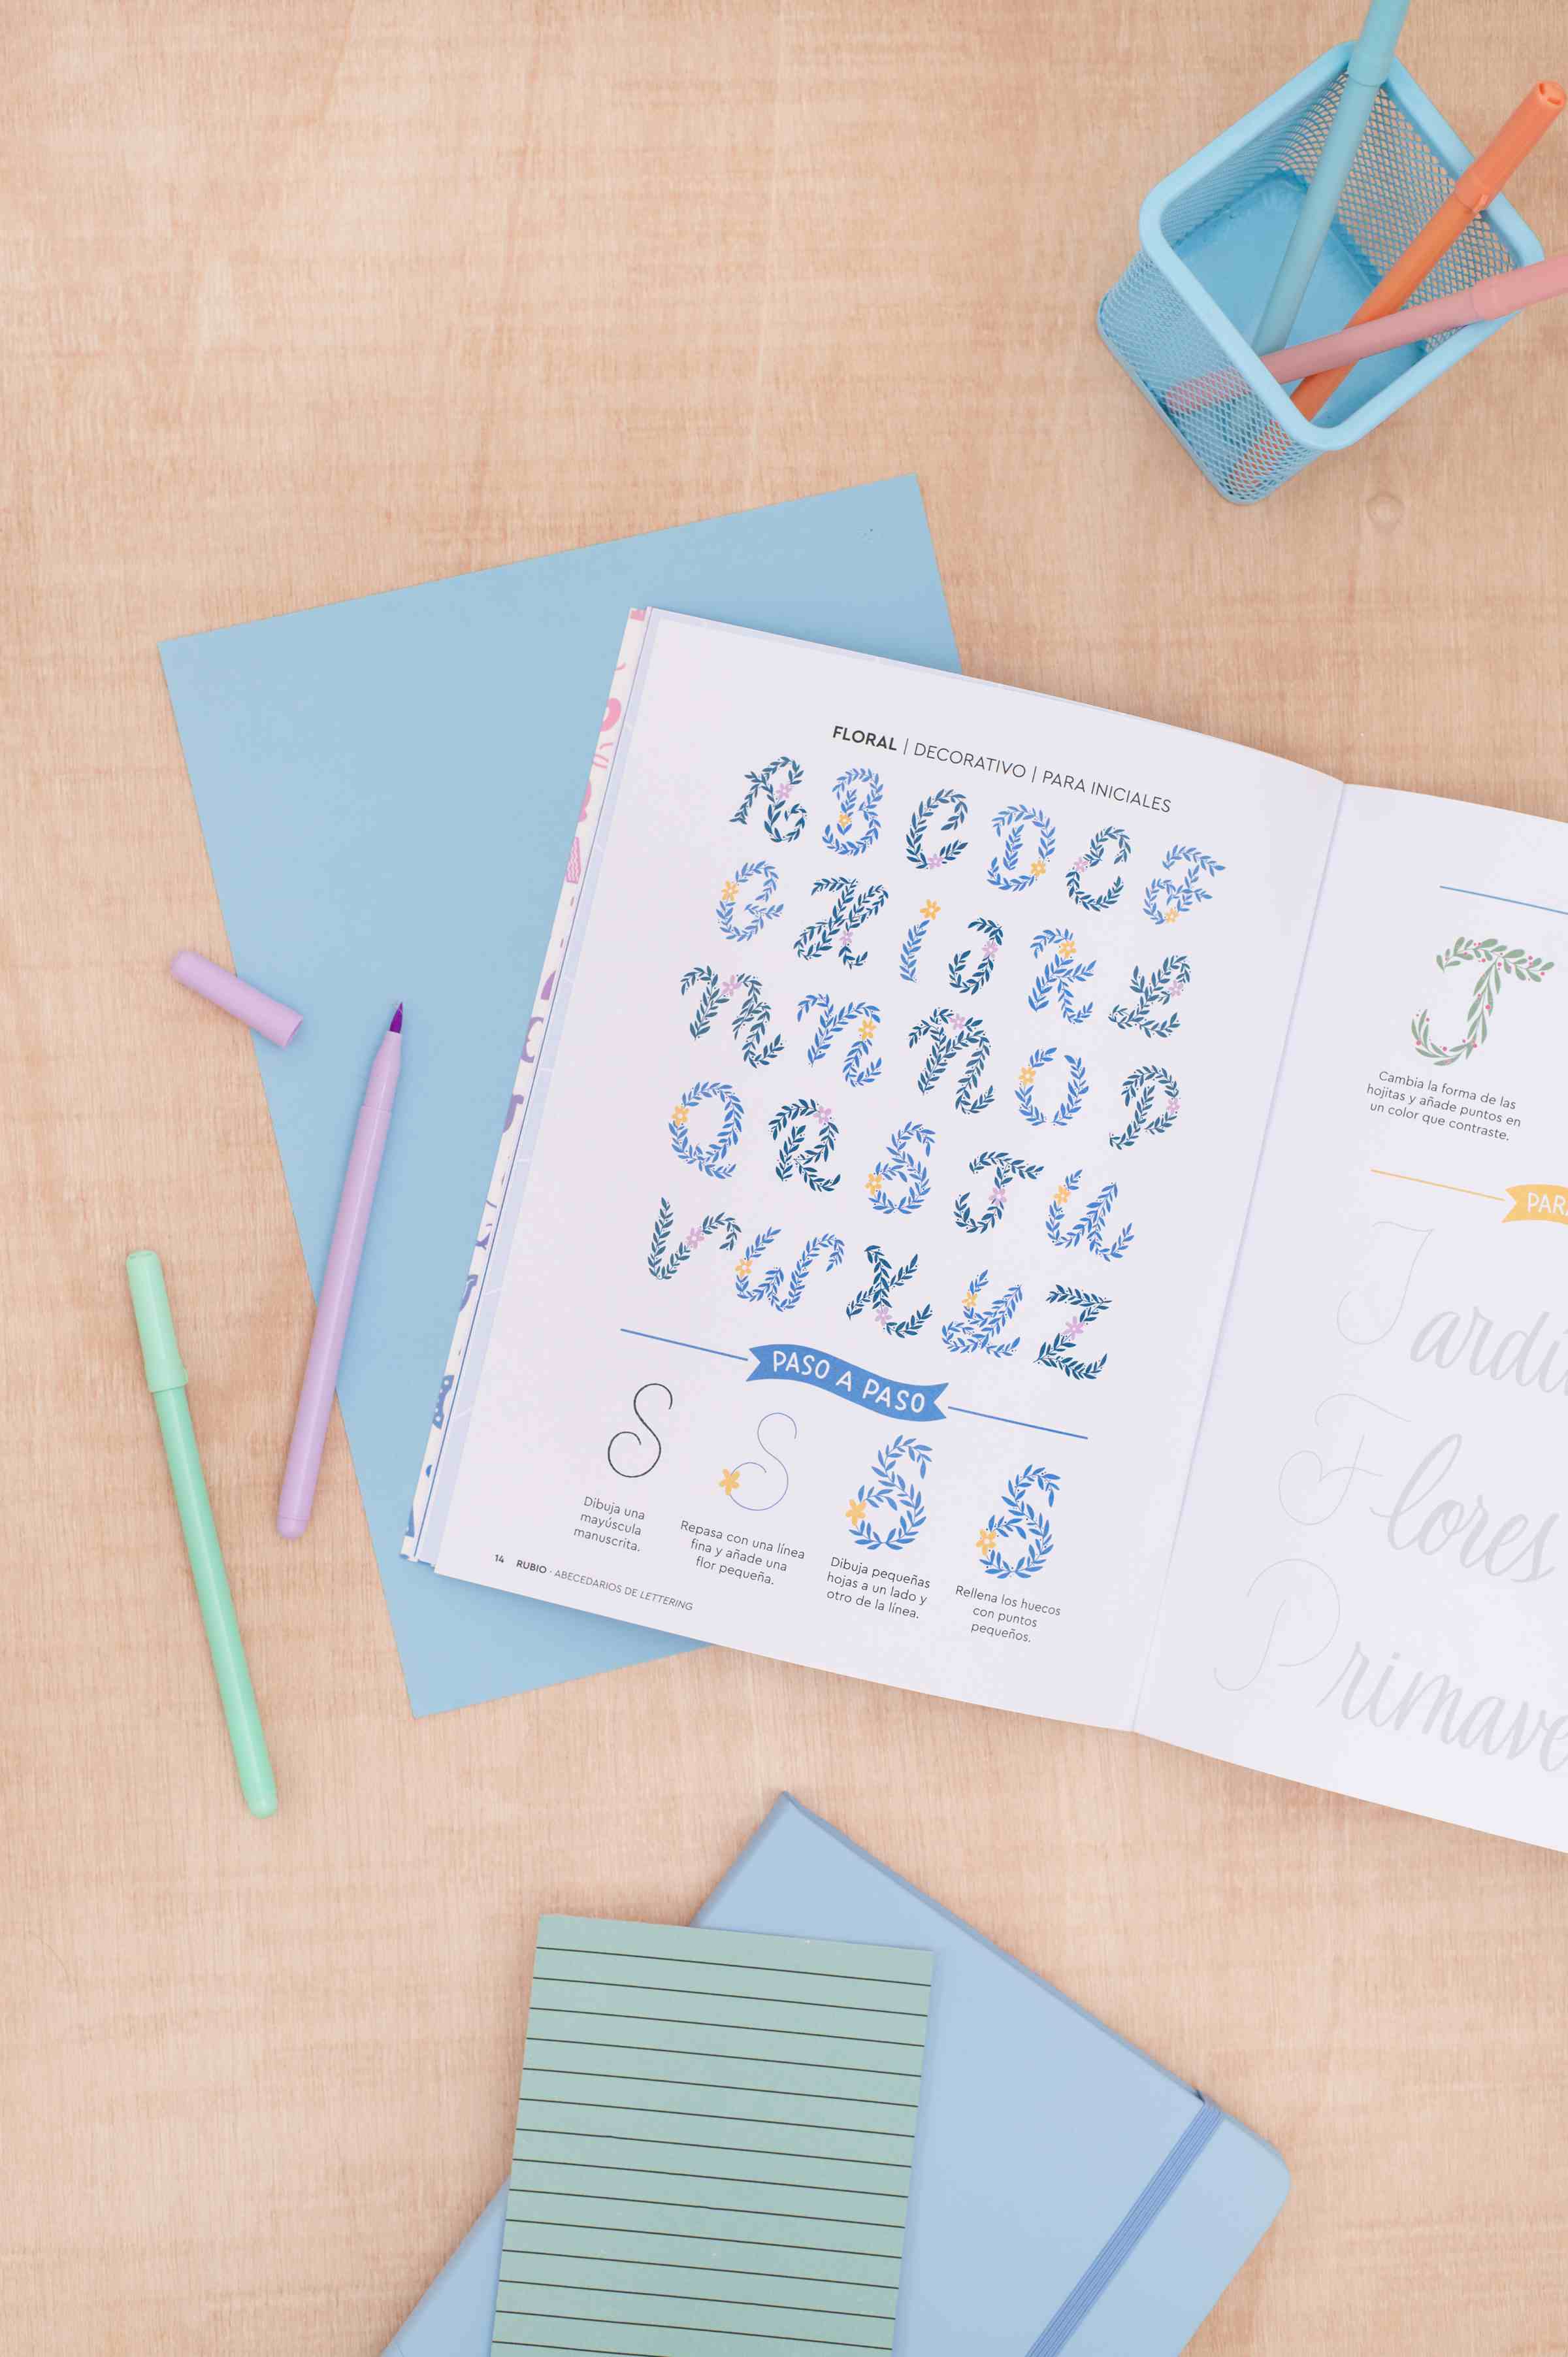 FLORAL | DECORATIVO | PARA INICIALES
A B C D E F
G H I J K L
M N Ñ O P
Q R S T U
V W X Y Z
PASO A PASO
S S S S
Dibuja una
mayúscula
manuscrita.
Repasa con una línea
fina y añade una
flor pequeña.
Dibuja pequeñas
hojas a un lado y
otro de la línea.
Rellena los huecos
con puntos
pequeños.
14 RUBIO · ABECEDARIOS DE LETTERING
J
Cambia la forma de las
hojitas y añade puntos en
un color que contraste.
Flores